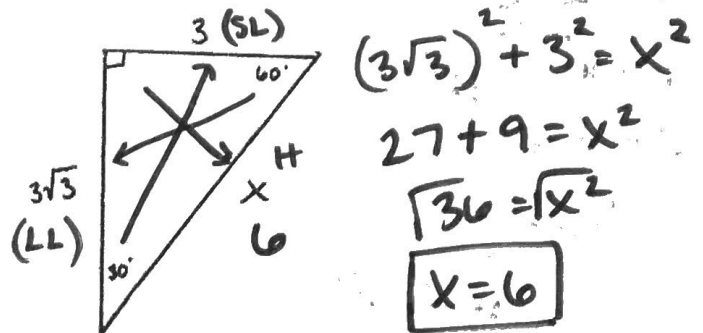 3 (SL)
60°
3√3
(LL)
30°
H
x
6
(3√3)² + 3² = x²
27 + 9 = x²
√36 = √x²
x = 6